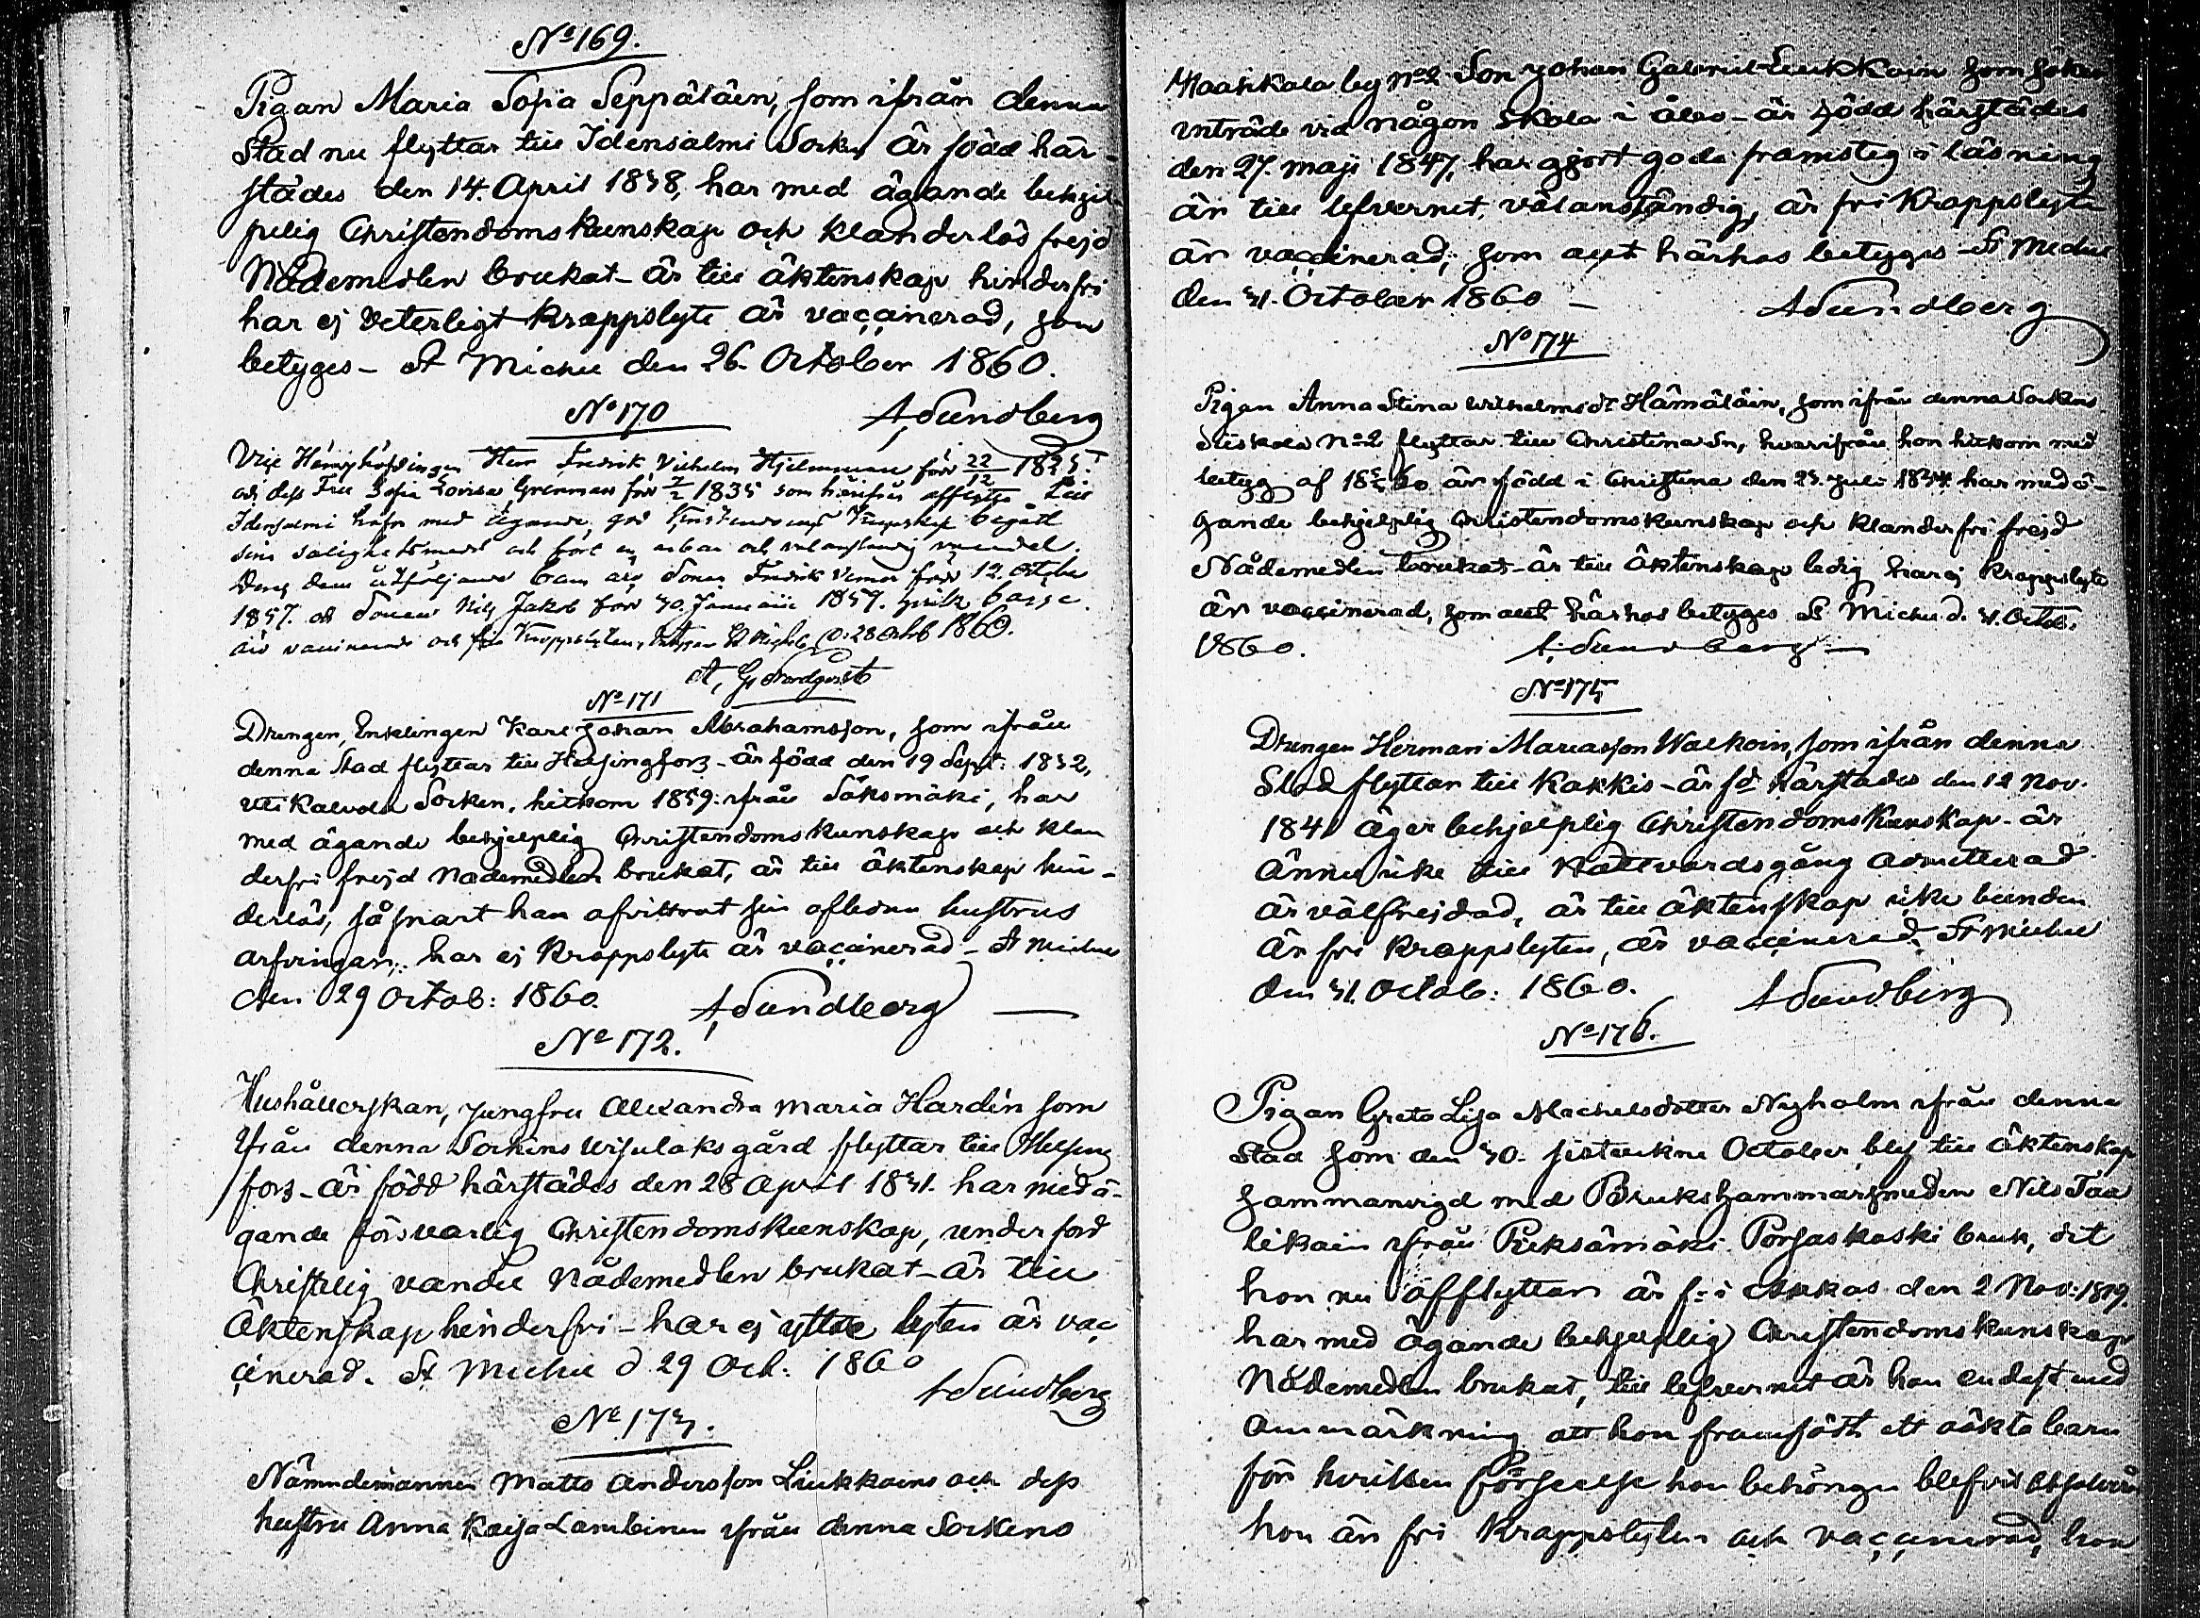 No 169.
Pigan Maria Sofia Seppäläin, som ifrån denna
Stad nu flyttar till Idensalmi Sockn är född här-
städes den 14. April 1838, har med ägande behjel
pelig Christendomskunskap och klanderlös frejd
Nådemedlen brukat – är till äktenskap hinderfri
har ej veterligt kroppslyte är vaccinerad, som
betyges – St Michel den 26. October 1860.
A Sundberg
No 170
Vice Häradshöfdingen Herr Fredrik Vilhelm Hjelmman född 22/12 1825.
och dess Fru Sofia Lovisa Grenman född 7/2 1835 som härifrån afflytta till
Idensalmi hafva med ägande god Christendoms kunskap begått
sina salighetsmedel och fört en ärbar och välanständig vandel.
dem åtföljande barn äro Sonen Fredrik Verner född 12. October
1857. och Sonen Nils Jakob född 30. Januarii 1859.
äro vaccinerade och fria Kroppslyten, betygar St Michel d. 28 Octob 1860.
A, G, Nordqvist
No 171
Drengen, Enklingen Karl Johan Abrahamsson, som ifrån
denna Stad flyttar till Helsingfors – är född den 19 Sept: 1832,
uti Kalvola Socken, hitkom 1859: ifrån Sääksmäki, har
med ägande behjelplig Christendomskunskap och klan
derfri frejd nådemedlen brukat, är till äktenskap hin-
derlös, så snart han afvittrat sin aflidna hustrus
arfvingar, har ej kroppslyte är vaccinerad – St Michel
den 29 Octob: 1860.
A Sundberg
No 172.
Hushållerskan, Jungfru Alexandra Maria Hardin som
ifrån denna Sockens Visulaks gård flyttar till Helsing
fors – är född härstädes den 28 April 1831. har med ä-
gande försvarlig Christendomskunskap, under förd
Christelig vandel Nådemedlen brukat – är till
Äktenskap hinderfri – har ej yttre lyten är vac
cinerad. St Michel d. 29 Oct: 1860
A Sundberg
No 173.
Nämndemannen Matts Andersson Liukkoins och dess
hustru Anna Kaisa Lambinen ifrån denna Sockens
by No 2 Son Johan Gabriel Liukkoin som söker
inträde vid någon Skola i Åbo – är född härstädes
den 27. Maji 1847, har gjort goda framsteg i läsning
är till lefvernet, välanständig, är fri Kroppslyte
är vaccinerad, som allt härhos betyges – St Michel
den 31. October 1860 –
A Sundberg
No 174
Pigan Anna Stina Wilhelmsdr Hämäläin, som ifrån denna Sockens
No 2 flyttar till Christina Sn, hvarifrån hon hitkom med
betyg af är född i Christina den 25. Juli 1834 har med ä-
gande behjelplig Christendomskunskap och klanderfri frejd
Nådemedlen brukat – är till äktenskap ledig har ej kroppslyte
är vaccinerad, som allt härhos betyges St Michel d. 31. Octob.
1860.
A. Sundberg –
No 175
Drengen Herman Mariasson Walkoin, som ifrån denna
Stad flyttar till Kakkis – är fd härstädes den 12 Nov.
184 äger behjelplig Christendoms Kunskap – är
ännu icke till Nattvardsgång admitterad
är välfrejdad, är till äktenskap icke bunden
är fri kroppslyten, är vaccinerad. St Michel
den 31. Octob: 1860.
A Sundberg
No 176.
Pigan Greta Lisa Michelsdotter Nyholm ifrån denna
Stad som den 30. sistvikne October blef till äktenskap
sammanvigd med Brukshammarsmeden Nils Taa
likain ifrån Pieksämäki Porsaskoski bruk, dit
hon nu afflyttar är f: i den 2 Nov: 1819.
har med ägande behjelplig Christendomskunskap
Nådemedlen brukat, till lefvernet är hon endast med
anmärkning att hon framfödt ett oäkta barn
för hvilken förseelse hon behörigen blifvit absolverad
hon är fri Kroppslyten och vaccinerad, hon